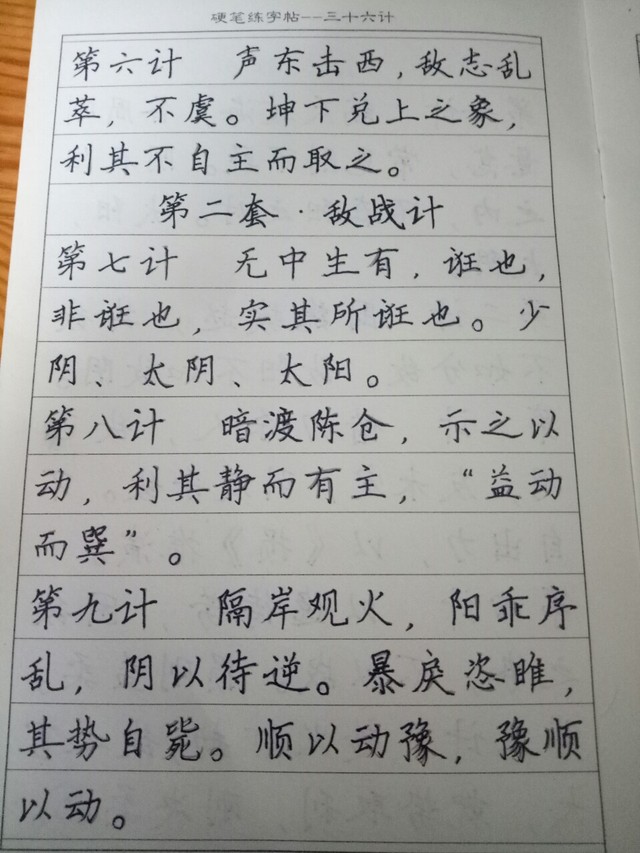 硬笔练字帖--三十六计
第六计 声东击西，敌志乱
萃，不虞。坤下兑上之象，
利其不自主而取之。
第二套·敌战计
第七计 无中生有，诳也，
非诳也，实其所诳也。少
阴、太阴、太阳。
第八计 暗渡陈仓，示之以
动，利其静而有主，“益动
而巽”。
第九计 隔岸观火，阳乖序
乱，阴以待逆。暴戾恣睢，
其势自毙。顺以动豫，豫顺
以动。